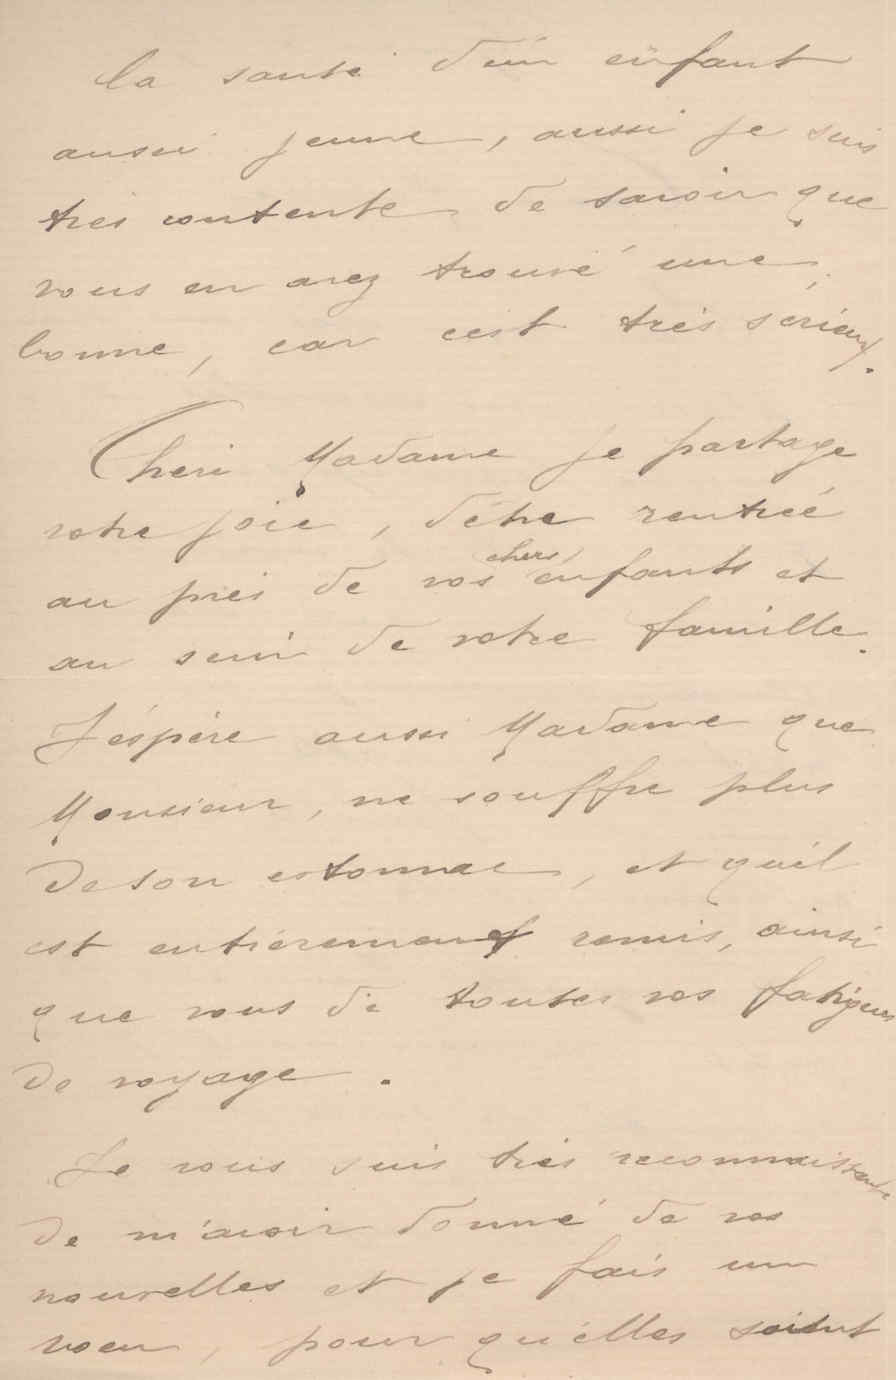 la santé d'un enfant
aussi jeune, aussi je suis
très contente de savoir que
vous en avez trouvé une
bonne, car c'est très sérieux.
Cheri Madame je partage
votre joie, d'être rentrée
au près de vos chers enfants et
au sein de votre famille.
J'éspère aussi Madame que
Monsieur, ne souffre plus
de son estomac, et qu'il
est entièrement remis, ainsi
que vous de toutes vos fatigues
de voyage.
Je vous suis très reconnaissante
de m'avoir donné de vos
nouvelles et je fais un
voeu, pour qu'elles soient